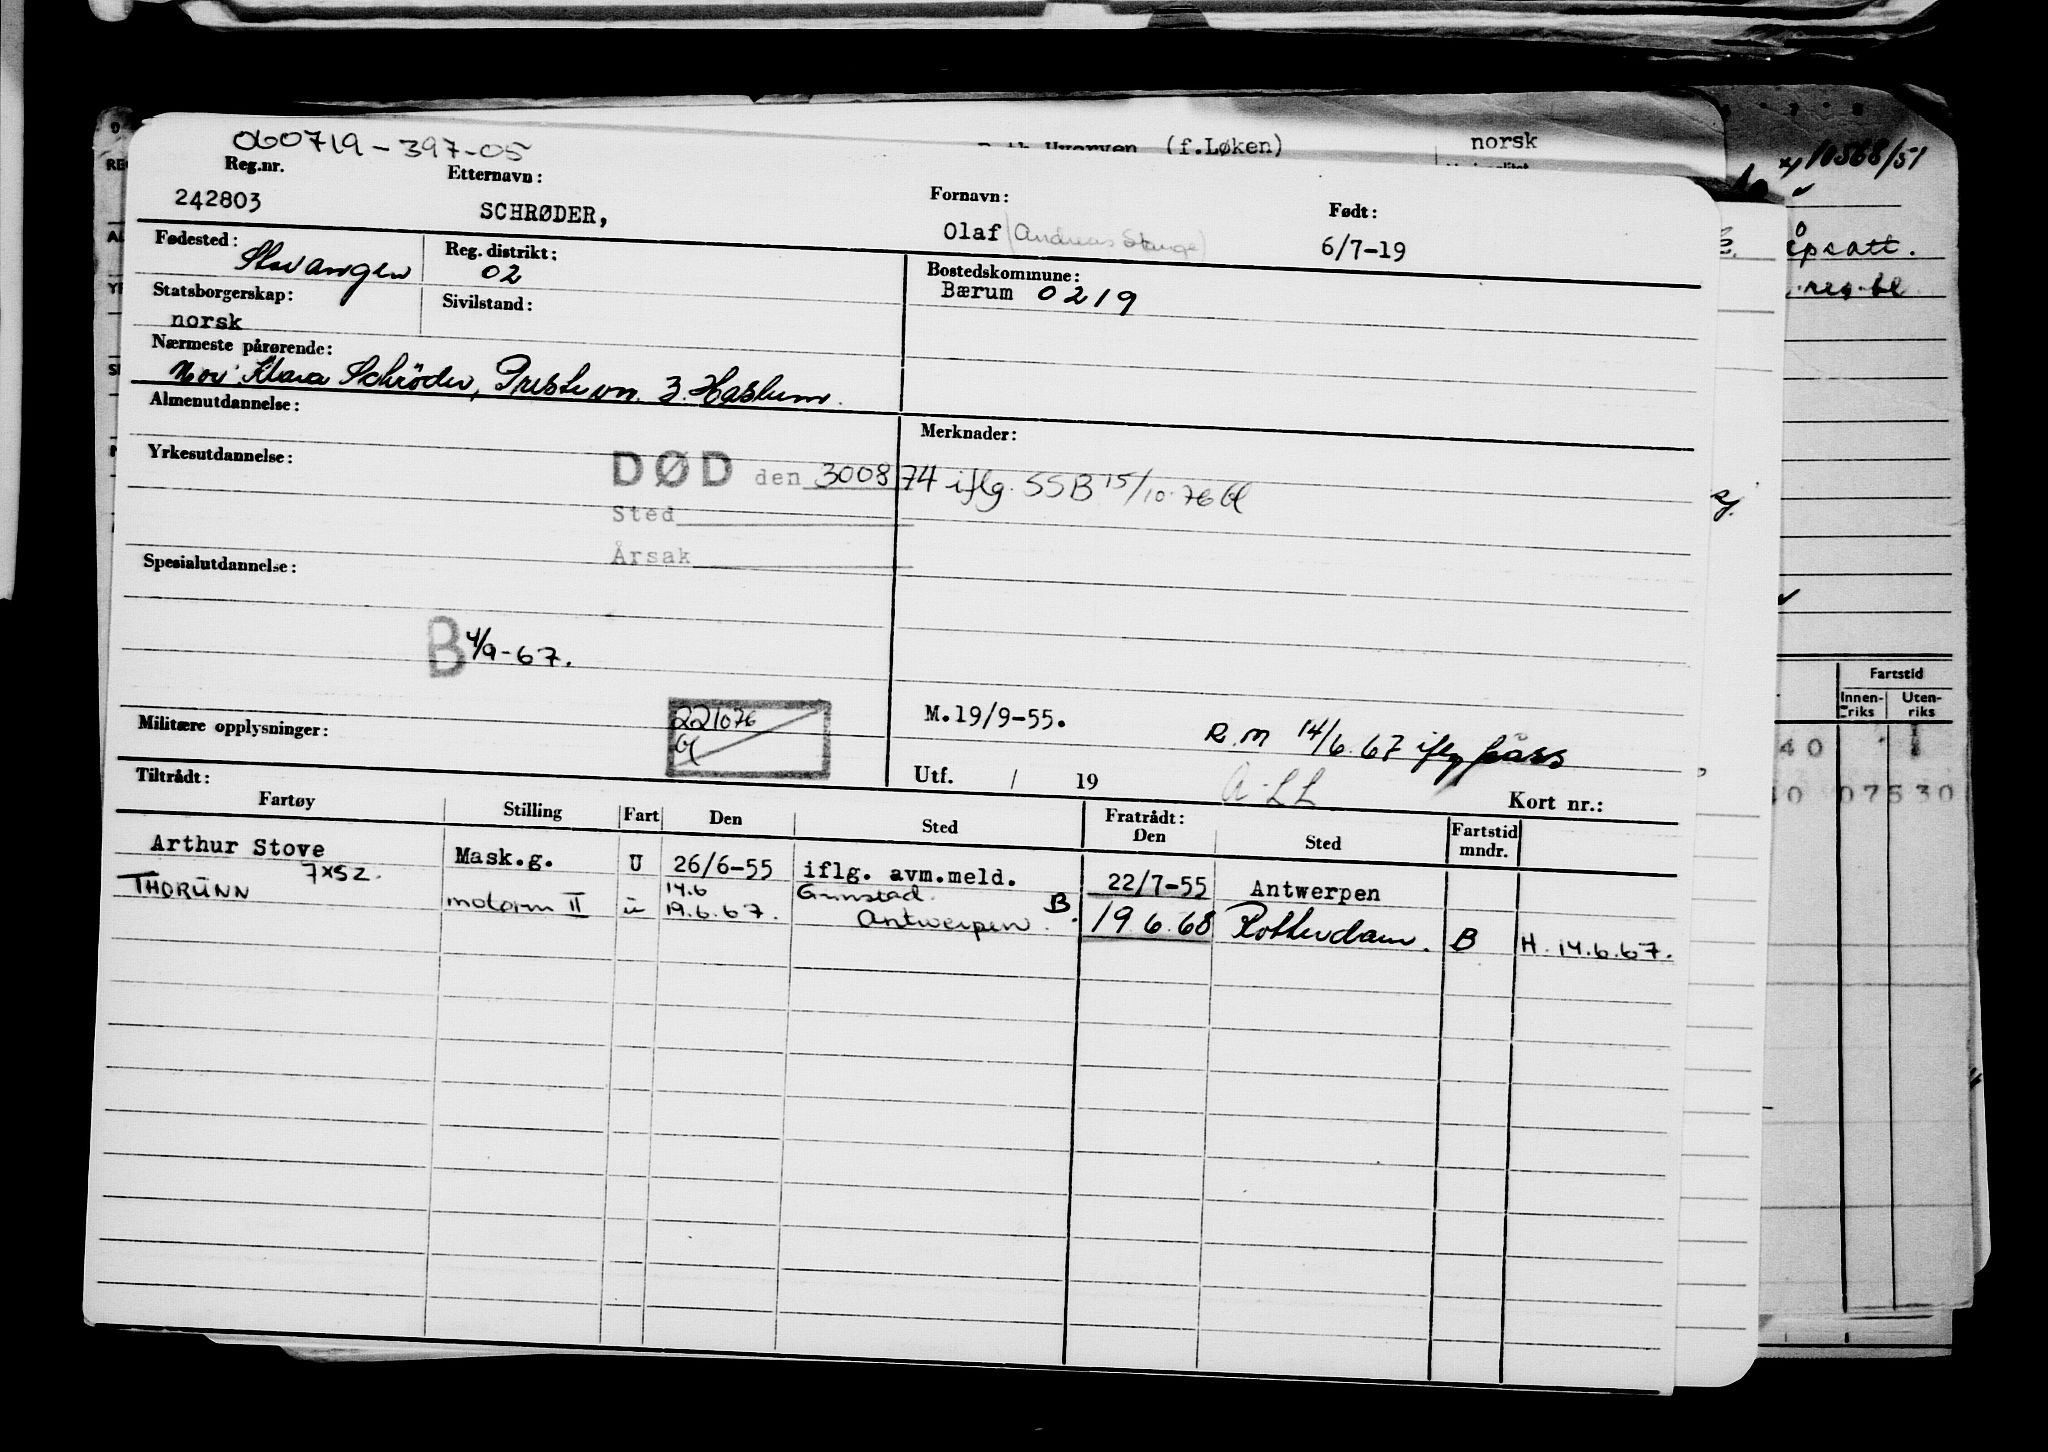 norsk
(f.Løken)
10568/51
060719-397-05
Reg.nr. Etternavn: Fornavn: Født:
242803 SCHRØDER, Olaf (Andreas Stange) 6/7-19
Fødested: Stavanger Reg. distrikt: 02 Bostedskommune: Bærum 0219
Statsborgerskap: norsk Sivilstand:
Nærmeste pårørende:
Mor: Klara Schröder, Prestevn. 3. Haslum.
Almenutdannelse: Merknader:
Yrkesutdannelse:
DØD den 300874 iflg. SSB 15/10.76
Sted
Årsak
Spesialutdannelse:
B 4/9-67.
221076
Militære opplysninger: M.19/9-55. R.M 14/6.67 iflg
Tiltrådt: Utf. / 19 Kort nr.:
Fartøy Stilling Fart Den Sted Fratrådt: Den Sted Fartstid mndr.
Arthur Stove Mask.g. U 26/6-55 iflg. avm.meld. 22/7-55 Antwerpen
7xSZ. 14.6 Grimstad.
THORUNN motorm II u 19.6.67. Antwerpen. B. 19.6.68 Rotterdam. B H. 14.6.67.
Fartstid
Innen-riks Uten-riks
40
07530